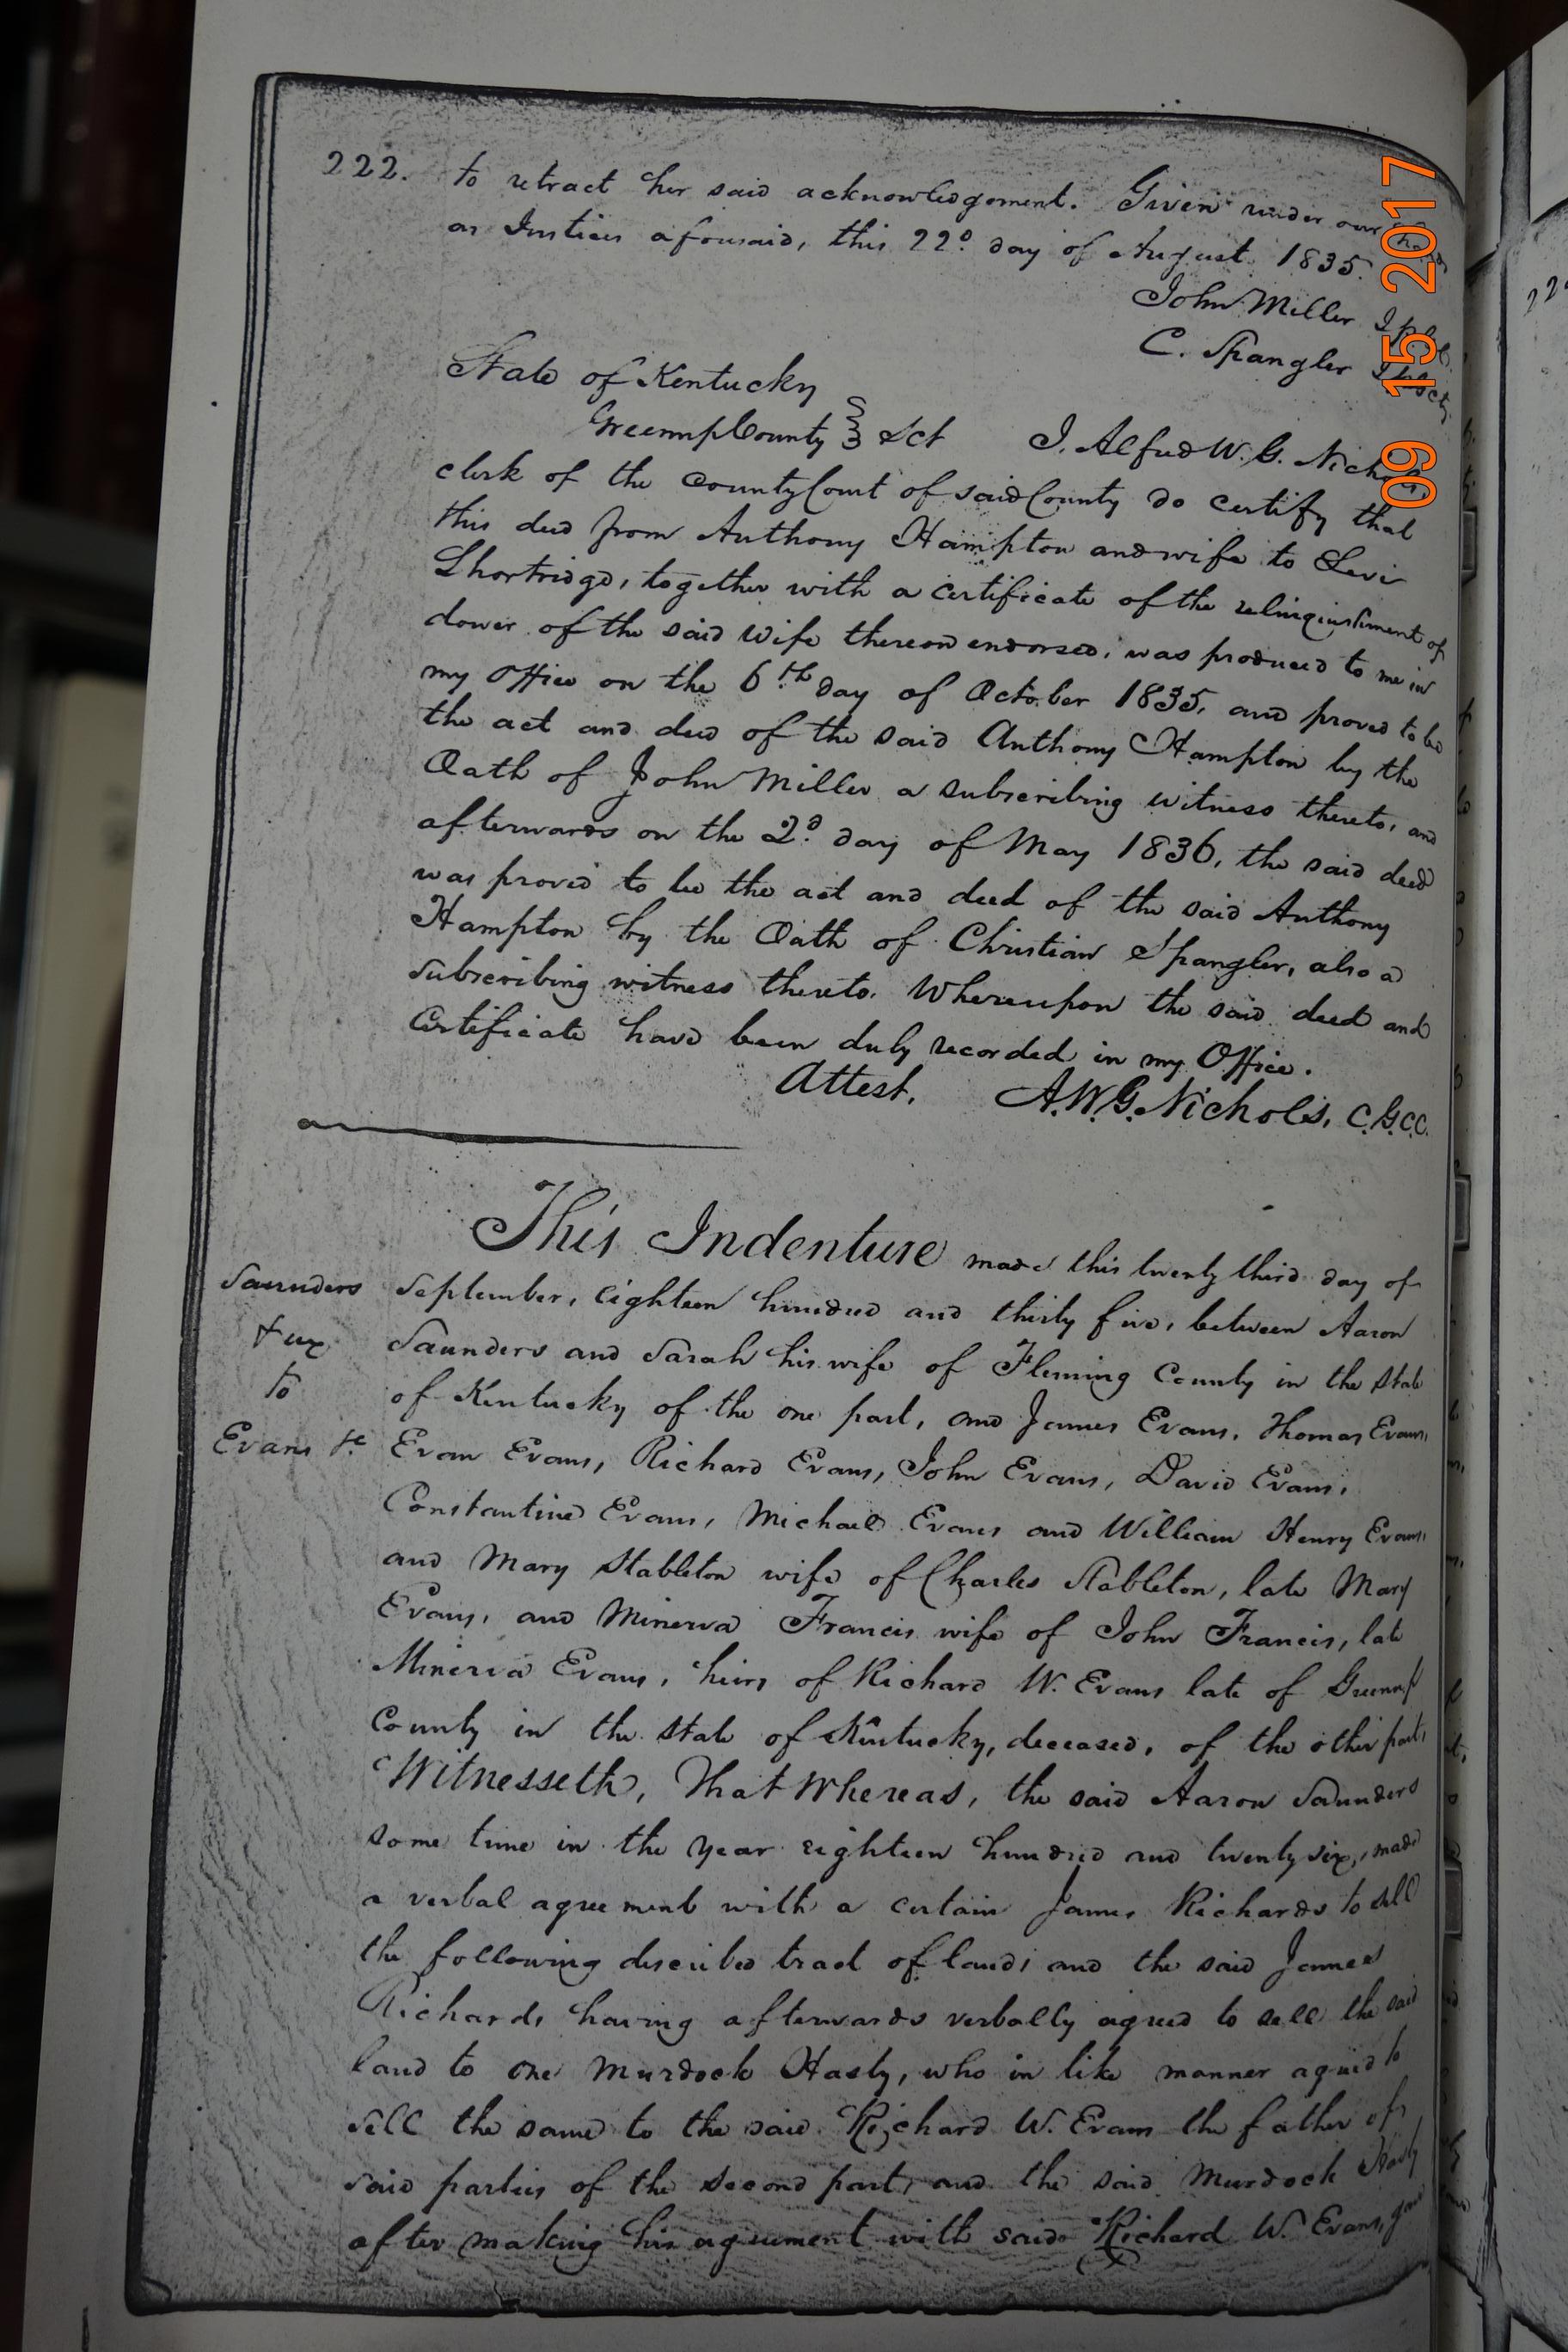 222. to retract her said acknowledgement. Given under our hands
as Justices aforesaid, this 22d day of August 1835.
John Miller
C. Spangler
State of Kentucky
Greenup County } Sct I. Alfred W. G. Nichols,
clerk of the County Court of said County do certify that
this deed from Anthony Hampton and wife to Levi
Shortridge, together with a certificate of the relinquishment of
dower of the said wife thereon endorsed, was produced to me in
my office on the 6th day of October 1835, and proved to be
the act and deed of the said Anthony Hampton by the
Oath of John Miller a subscribing witness thereto, and
afterwards on the 2d day of May 1836, the said deed
was proved to be the act and deed of the said Anthony
Hampton by the Oath of Christian Spangler, also a
subscribing witness thereto. Whereupon the said deed and
certificate have been duly recorded in my Office.
Attest, A.W.G. Nichols, C.G.C.C.
This Indenture made this twenty third day of
Saunders September, eighteen hundred and thirty five, between Aaron
& ux Saunders and Sarah his wife of Fleming County in the state
to of Kentucky of the one part, and James Evans, Thomas Evans,
Evans &c Evan Evans, Richard Evans, John Evans, David Evans,
Constantine Evans, Michael Evans and William Henry Evans,
and Mary Stableton wife of Charles Stableton, late Mary
Evans, and Minerva Francis wife of John Francis, late
Minerva Evans, heirs of Richard W. Evans late of Greenup
County in the state of Kentucky, deceased, of the other part,
Witnesseth, That Whereas, the said Aaron Saunders
some time in the year eighteen hundred and twenty six, made
a verbal agreement with a certain James Richards to sell
the following described tract of land; and the said James
Richards having afterwards verbally agreed to sell the said
land to one Murdock Hasty, who in like manner agreed to
sell the same to the said Richard W. Evans the father of
said parties of the second part, and the said Murdock Hasty
after making his agreement with said Richard W. Evans, gave
09 15 2017